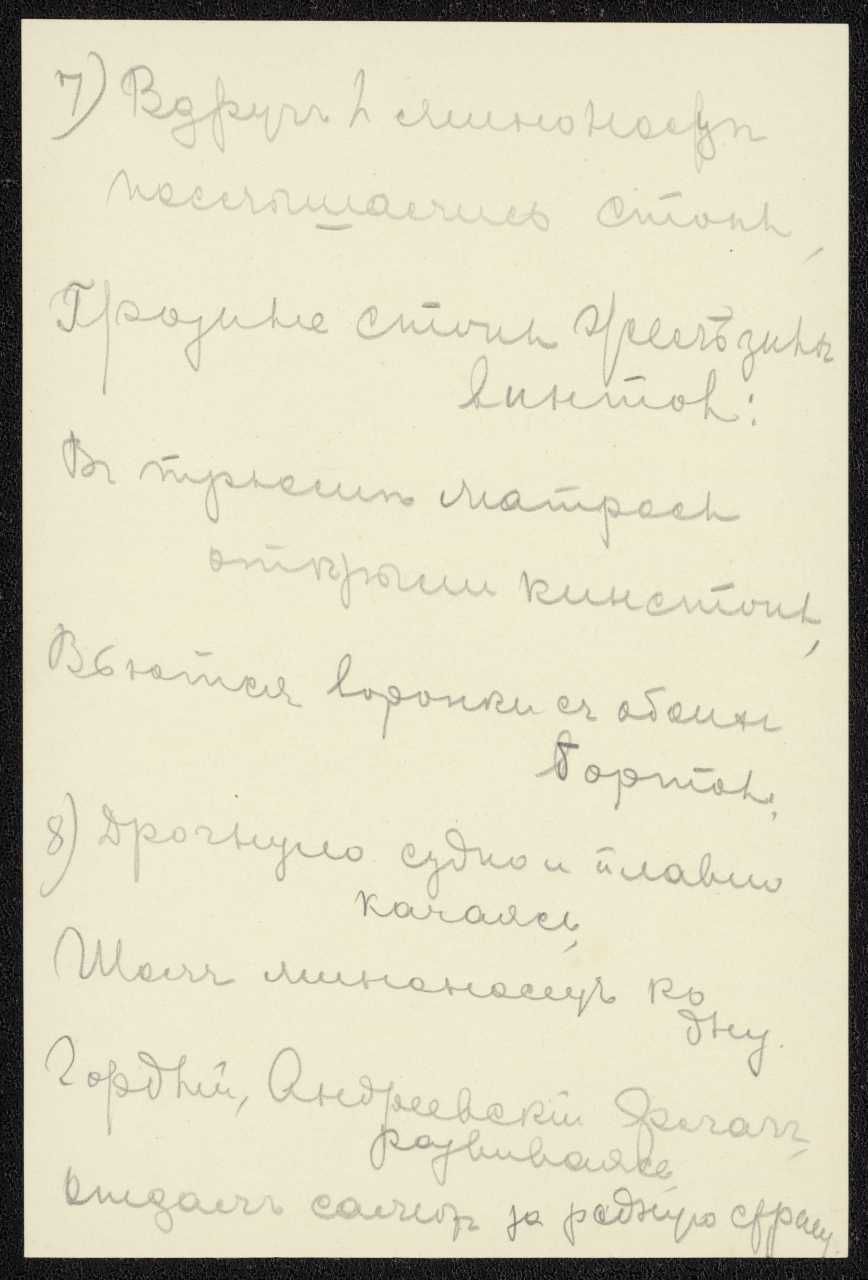 7) Вдругъ въ миноносцѣ
послышались стоны,
Грозные стоны желѣзныхъ
винтовъ:
Въ трюмѣ матросы
открыли кингстоны,
Вьются воронки съ обоихъ
бортовъ.
8) Дрогнуло судно и плавно
качаясь,
Шелъ миноносецъ ко
дну.
Гордый, Андреевскій
развиваясь,
Отдалъ салютъ за родную страну.